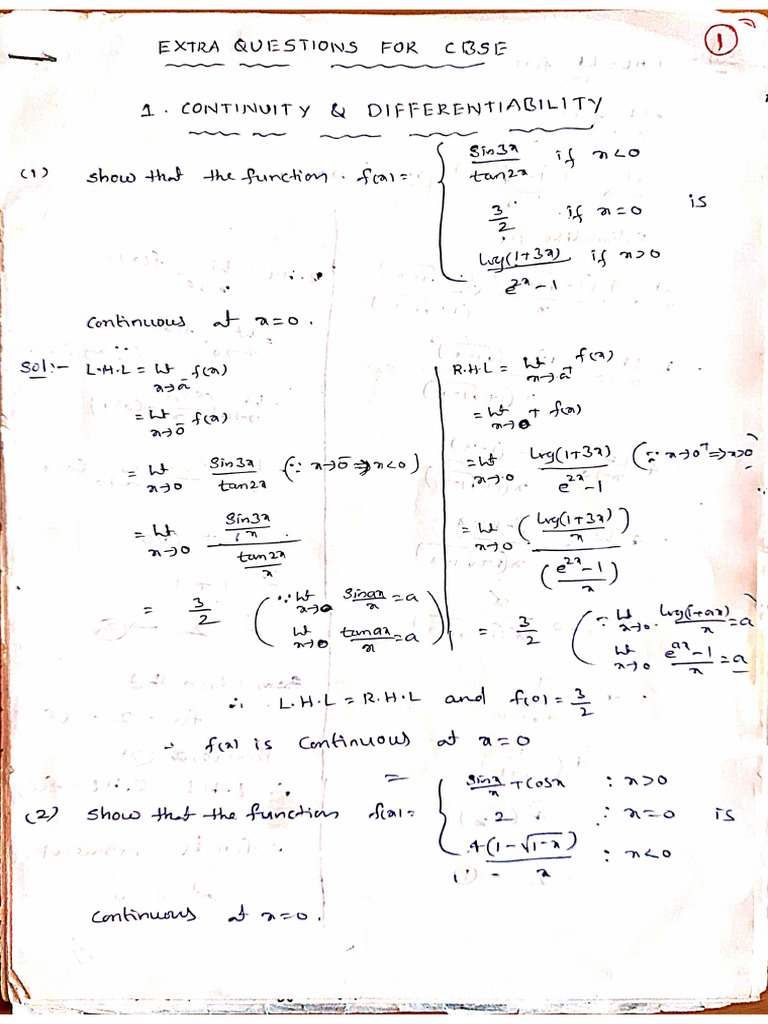 1
EXTRA QUESTIONS FOR CBSE
1. CONTINUITY & DIFFERENTIABILITY
(1) Show that the function f(x) = { sin3x/tan2x if x<0
3/2 if x=0 is
log(1+3x)/e^2x - 1 if x>0
Continuous at x=0.
Sol:- L.H.L = Lt x→a⁻ f(x)
= Lt x→0⁻ f(x)
= Lt x→0 sin3x/tan2x (∵ x→0⁻ ⇒ x<0)
= Lt x→0 (sin3x/x)/(tan2x/x)
= 3/2 (∵ Lt x→0 sinax/x = a
Lt x→0 tanax/x = a)
R.H.L = Lt x→a⁺ f(x)
= Lt x→0⁺ f(x)
= Lt x→0 log(1+3x)/e^2x - 1 (∵ x→0⁺ ⇒ x>0)
= Lt x→0 (log(1+3x)/x)/(e^2x - 1/x)
= 3/2 (∵ Lt x→0 log(1+ax)/x = a
Lt x→0 e^ax - 1/x = a)
∴ L.H.L = R.H.L and f(0) = 3/2
∴ f(x) is continuous at x=0
(2) Show that the function f(x) = { sinx/x + cosx : x>0
2 : x=0 is
4(1-√1-x)/x : x<0
Continuous at x=0.